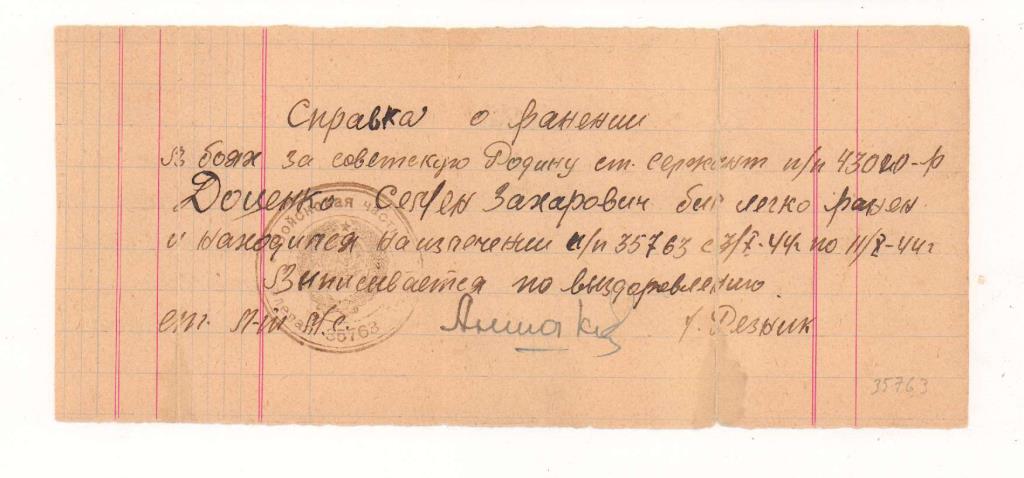 Справка о ранении
В боях за советскую Родину ст. сержант п/п 43020-р
Доценко Семен Захарович был легко ранен
и находился на излечении п/п 35763 с 3/X-44г по 11/X-44г
Выписывается по выздоровлению
ст. л-т м/с. Резник
Войсковая часть
35763
35763